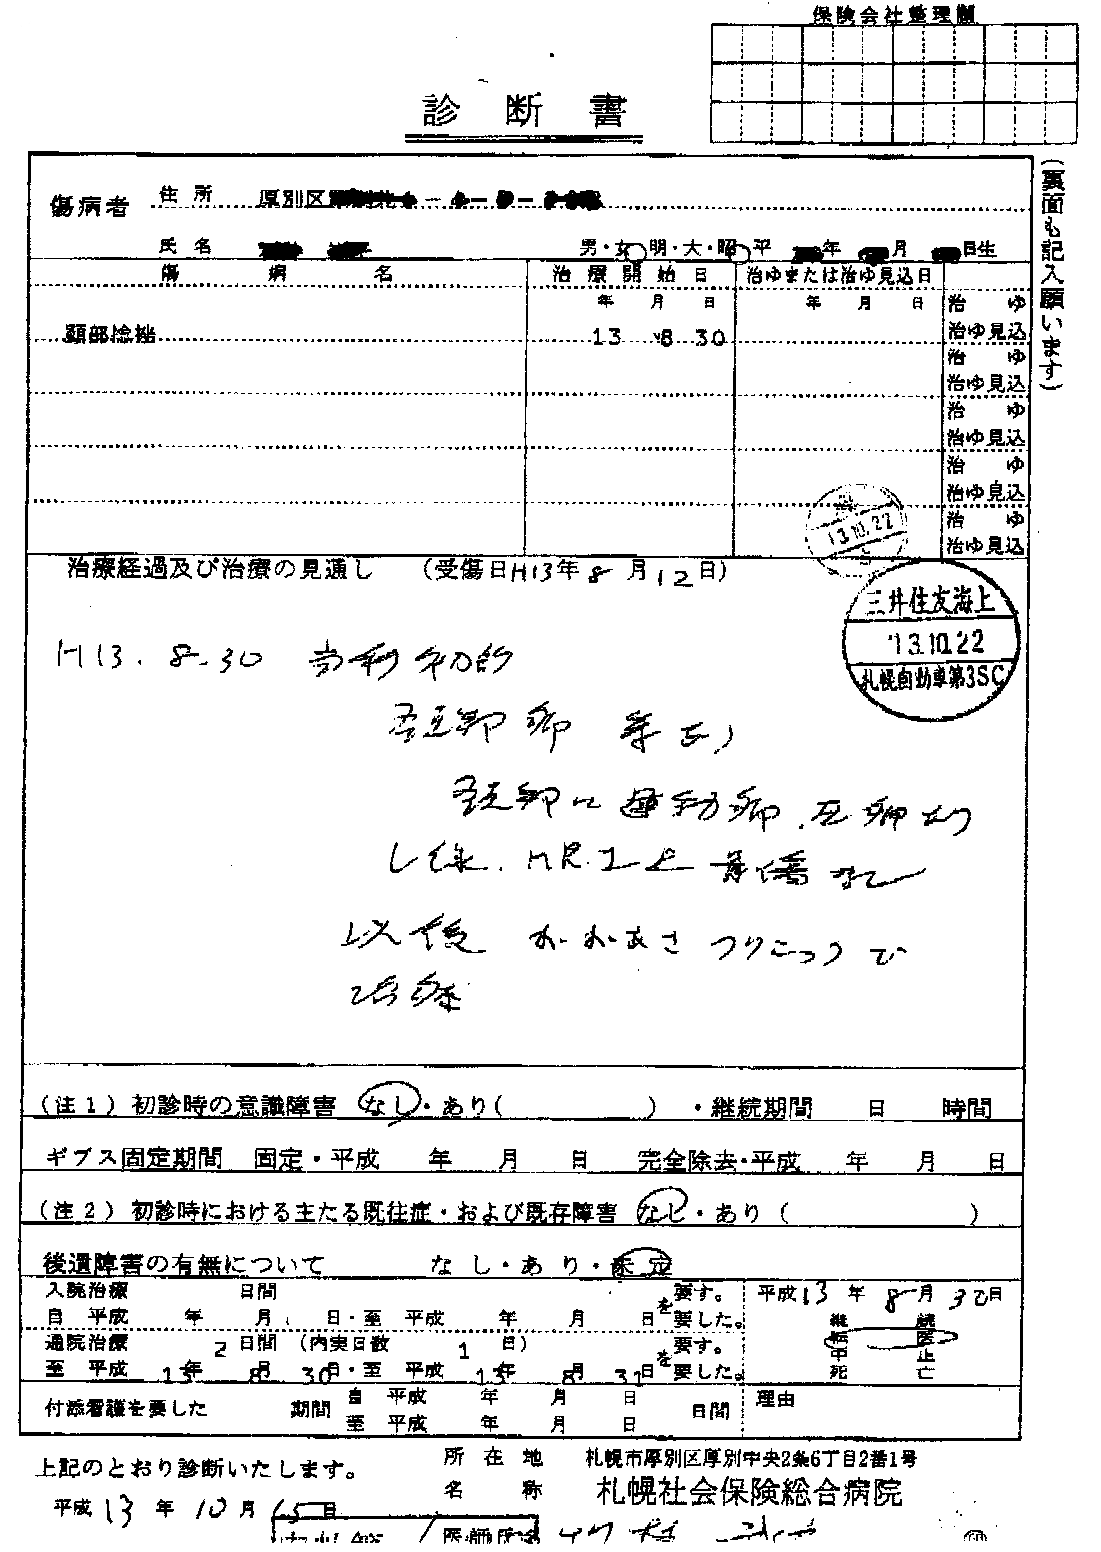 保険会社整理欄
診断書
(裏面も記入願います)
傷病者 住所 厚別区
氏名 男・女 明・大・昭・平 年 月 日生
傷病名 治療開始日 治ゆまたは治ゆ見込日
年 月 日 年 月 日 治ゆ
頸部捻挫 13 8 30 治ゆ見込
治ゆ
治ゆ見込
治ゆ
治ゆ見込
治ゆ
治ゆ見込
治ゆ
13.10.22
治ゆ見込
治療経過及び治療の見通し (受傷日H13年8月12日)
三井住友海上
'13.10.22
札幌自動車第3SC
H13.8.30 当科初診
頸部痛 等あり
頸部に運動痛、圧痛あり
レ線、MRI上 骨傷なし
以後 クリニックで
治療
(注1) 初診時の意識障害 なし・あり( )・継続期間 日 時間
ギブス固定期間 固定・平成 年 月 日 完全除去・平成 年 月 日
(注2) 初診時における主たる既往症・および既存障害 なし・あり( )
後遺障害の有無について なし・あり・未定
入院治療 日間 を要す。 平成13年8月30日
自 平成 年 月 日・至 平成 年 月 日 要した。 継続
通院治療 2日間 (内実日数 1日) を要す。 転医 中止
至 平成13年8月30日・至 平成13年8月31日 要した。 死亡
付添看護を要した 期間 自 平成 年 月 日 日間 理由
至 平成 年 月 日
上記のとおり診断いたします。 所在地 札幌市厚別区厚別中央2条6丁目2番1号
名称 札幌社会保険総合病院
平成13年10月15日
医師氏名
印